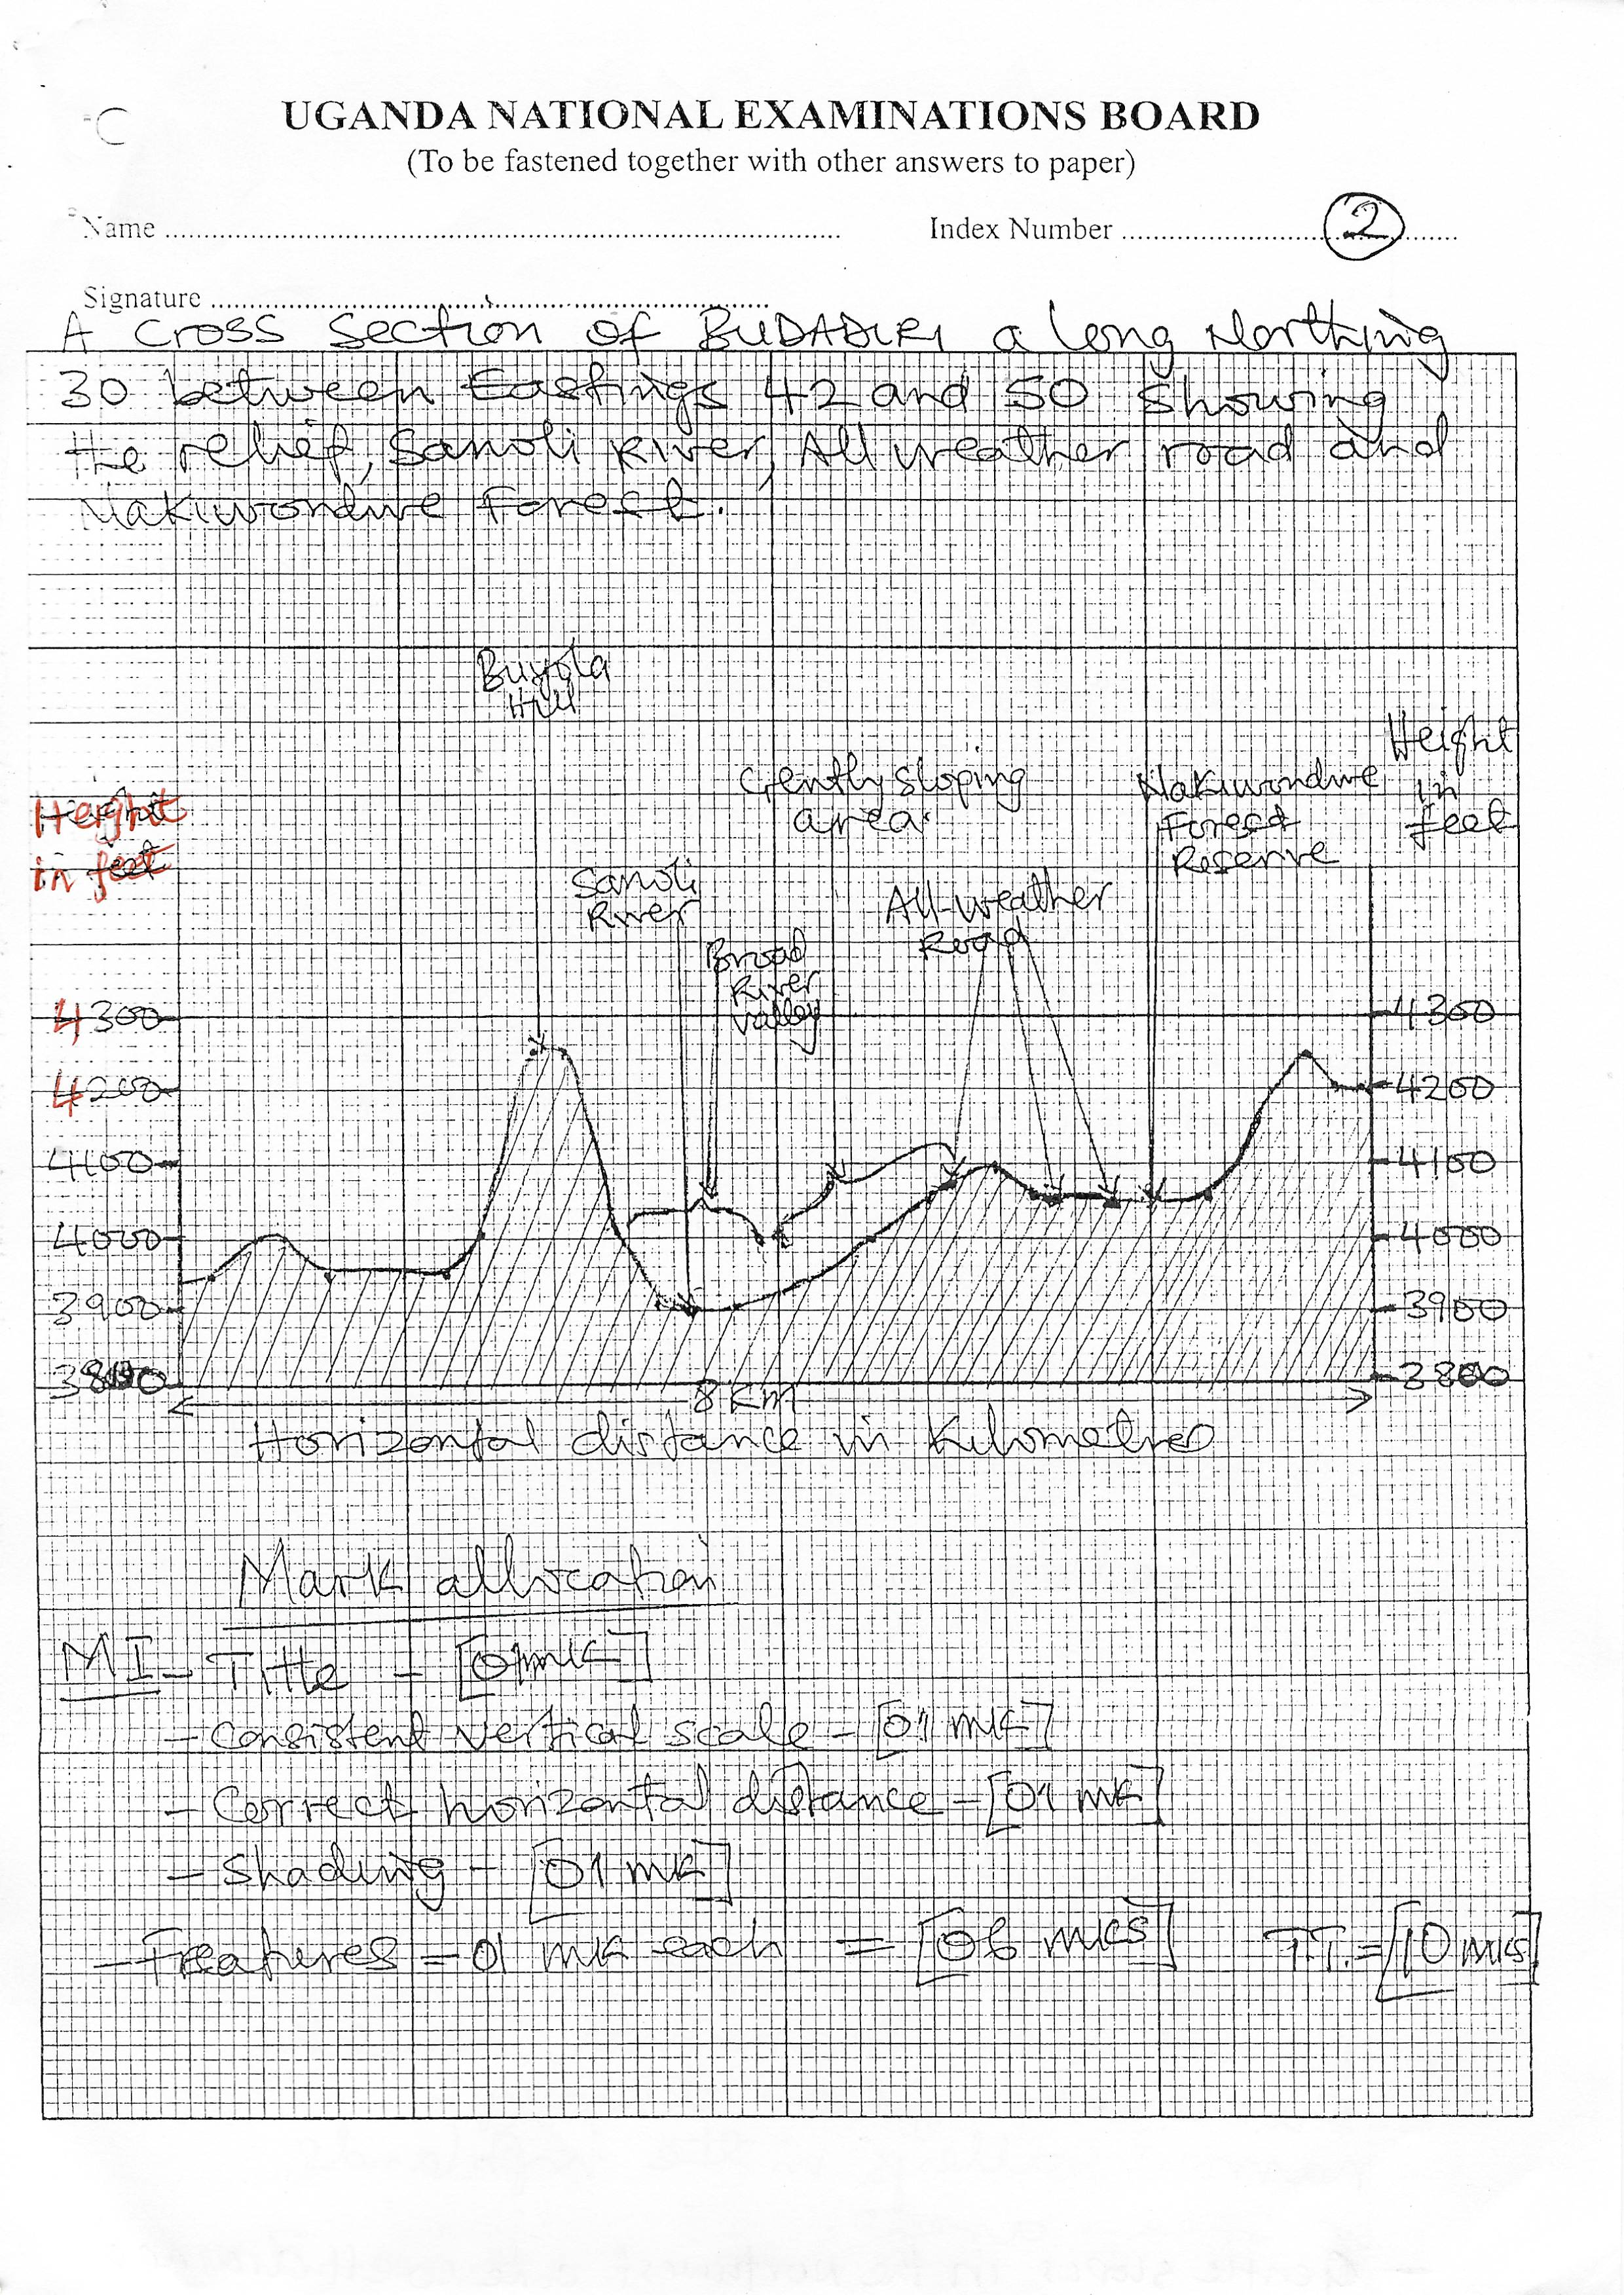 UGANDA NATIONAL EXAMINATIONS BOARD
(To be fastened together with other answers to paper)
Name
Index Number
2
Signature
A cross section of BUDADIRI a long Northing
30 between Eastings 42 and 50 showing
the relief, Sanoli River, All weather road and
Nakiwondwe Forest.
Buyola
Hill
Height
in
feet
Gently sloping
area
Nakiwondwe
Forest
Reserve
Height
in feet
Sanoli
River
All-weather
Road
Broad
River
valley
4300
4300
4200
4200
4100
4100
4000
4000
3900
3900
3800
3800
8 Km
Horizontal distance in Kilometres
Mark allocation
MI - Title - [01mk]
- Consistent vertical scale - [01 mk]
- Correct horizontal distance - [01 mk]
- Shading - [01 mk]
- Features = 01 mk each = [06 mks] TT. = [10 mks]